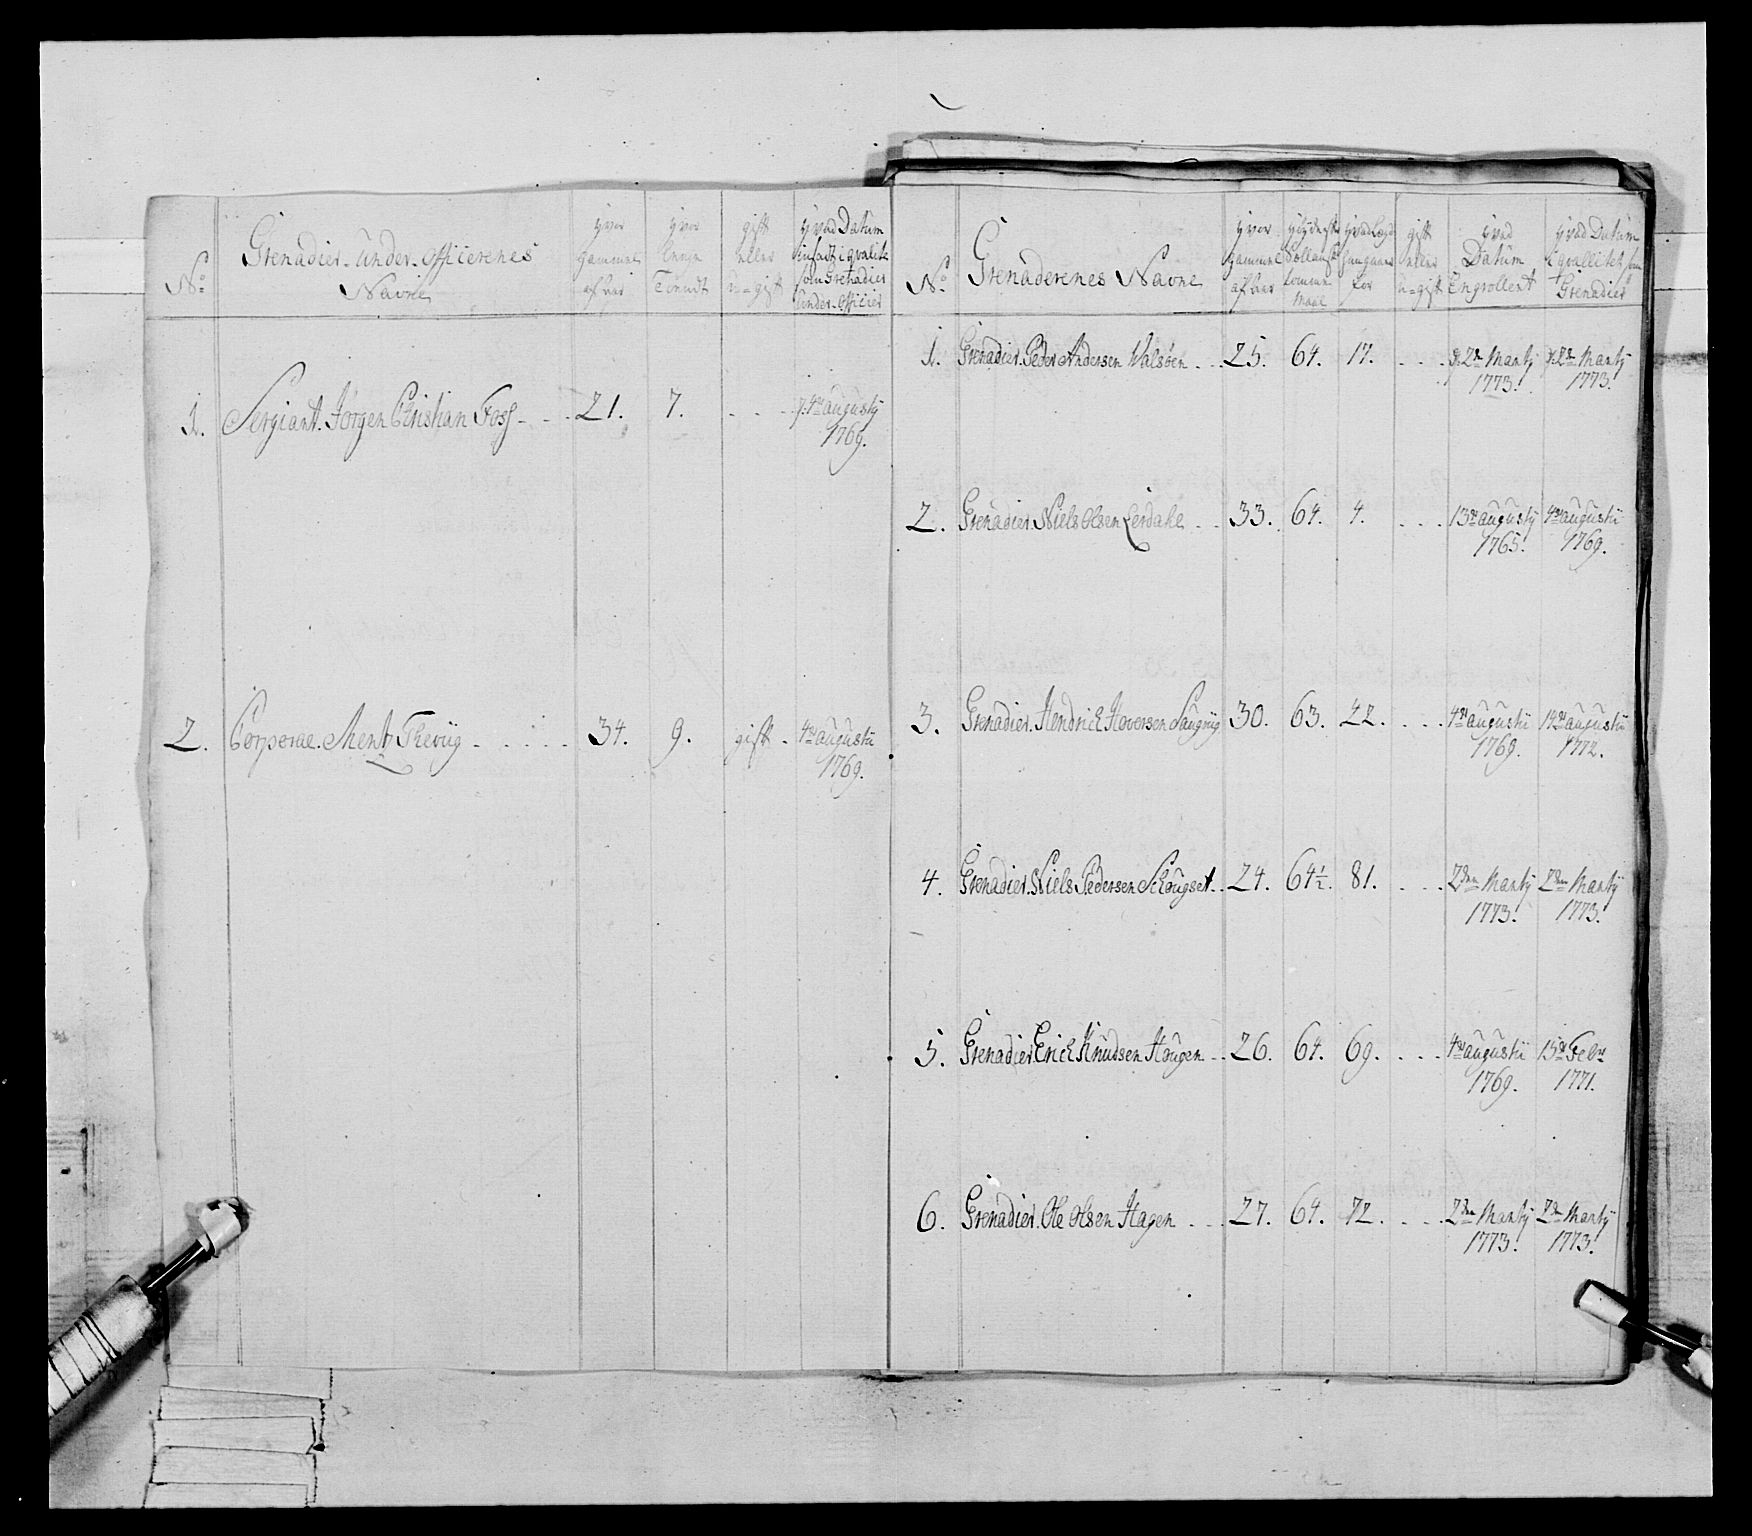 No
Grenadier-Under-Officerenes
Navne
hvor
gammel
af aar
hvor
lenge
Tiendt
gift
eller
u=gift
hvad Datum
indsadt i qvalitet
som Grenadier
Under-Officier
1. Sergiant. Jørgen Christian Foss - - - 21. 7. - - - d. 4de augusty
1769.
2. Corporal. Mentz Theiig - - - - - 34. 9. gift - 4de augustii
1769.
No
Grenaderenes Navne
hvor
gammel
af aar
tomme
Maal
hvad Lægd
for
gift
eller
u=gift
hvad
Datum
Engrollert
hvad Datum
i qvallitet som
Grenadier
1. Grenadier. Peder Andersen Walsøen - - - 25. 64. 17. - - - d. 2de Marty d. 2de Marty
1773. 1773.
2. Grenadier. Niels Olsen Lerdahl - - - 33. 64. 4. - - - 13de augusty 4de augustii
1765. 1769.
3. Grenadier. Hendrich Hoversen Haugriig 30. 63. 42. - - - 4de augustii 14de augustii
1769. 1772.
4. Grenadier. Niels Pedersen Schougset - - 24. 64½. 81. - - - 2den Marty 2den Marty
1773. 1773.
5. Grenadier Erich Knudsen Haugen - - 26. 64. 69. - - - 4de augustii 15de Febr
1769. 1771.
6. Grenadier. Ole Olsen Hagen - - - 27. 64. 72. - - - 2den Marty 2den Marty
1773. 1773.